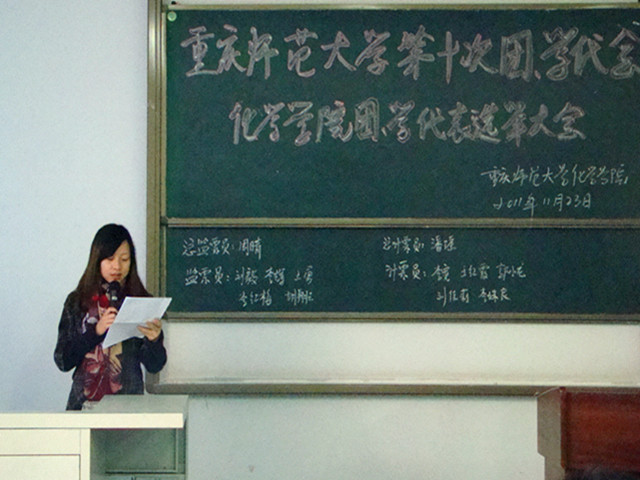 重庆师范大学第十次团、学代会
化学学院团学代表选举大会
重庆师范大学化学学院
2011年11月23日
总监票员：周晴
总计票员：潘
监票员：刘毅 李 王勇
计票员：李
李红梅
刘